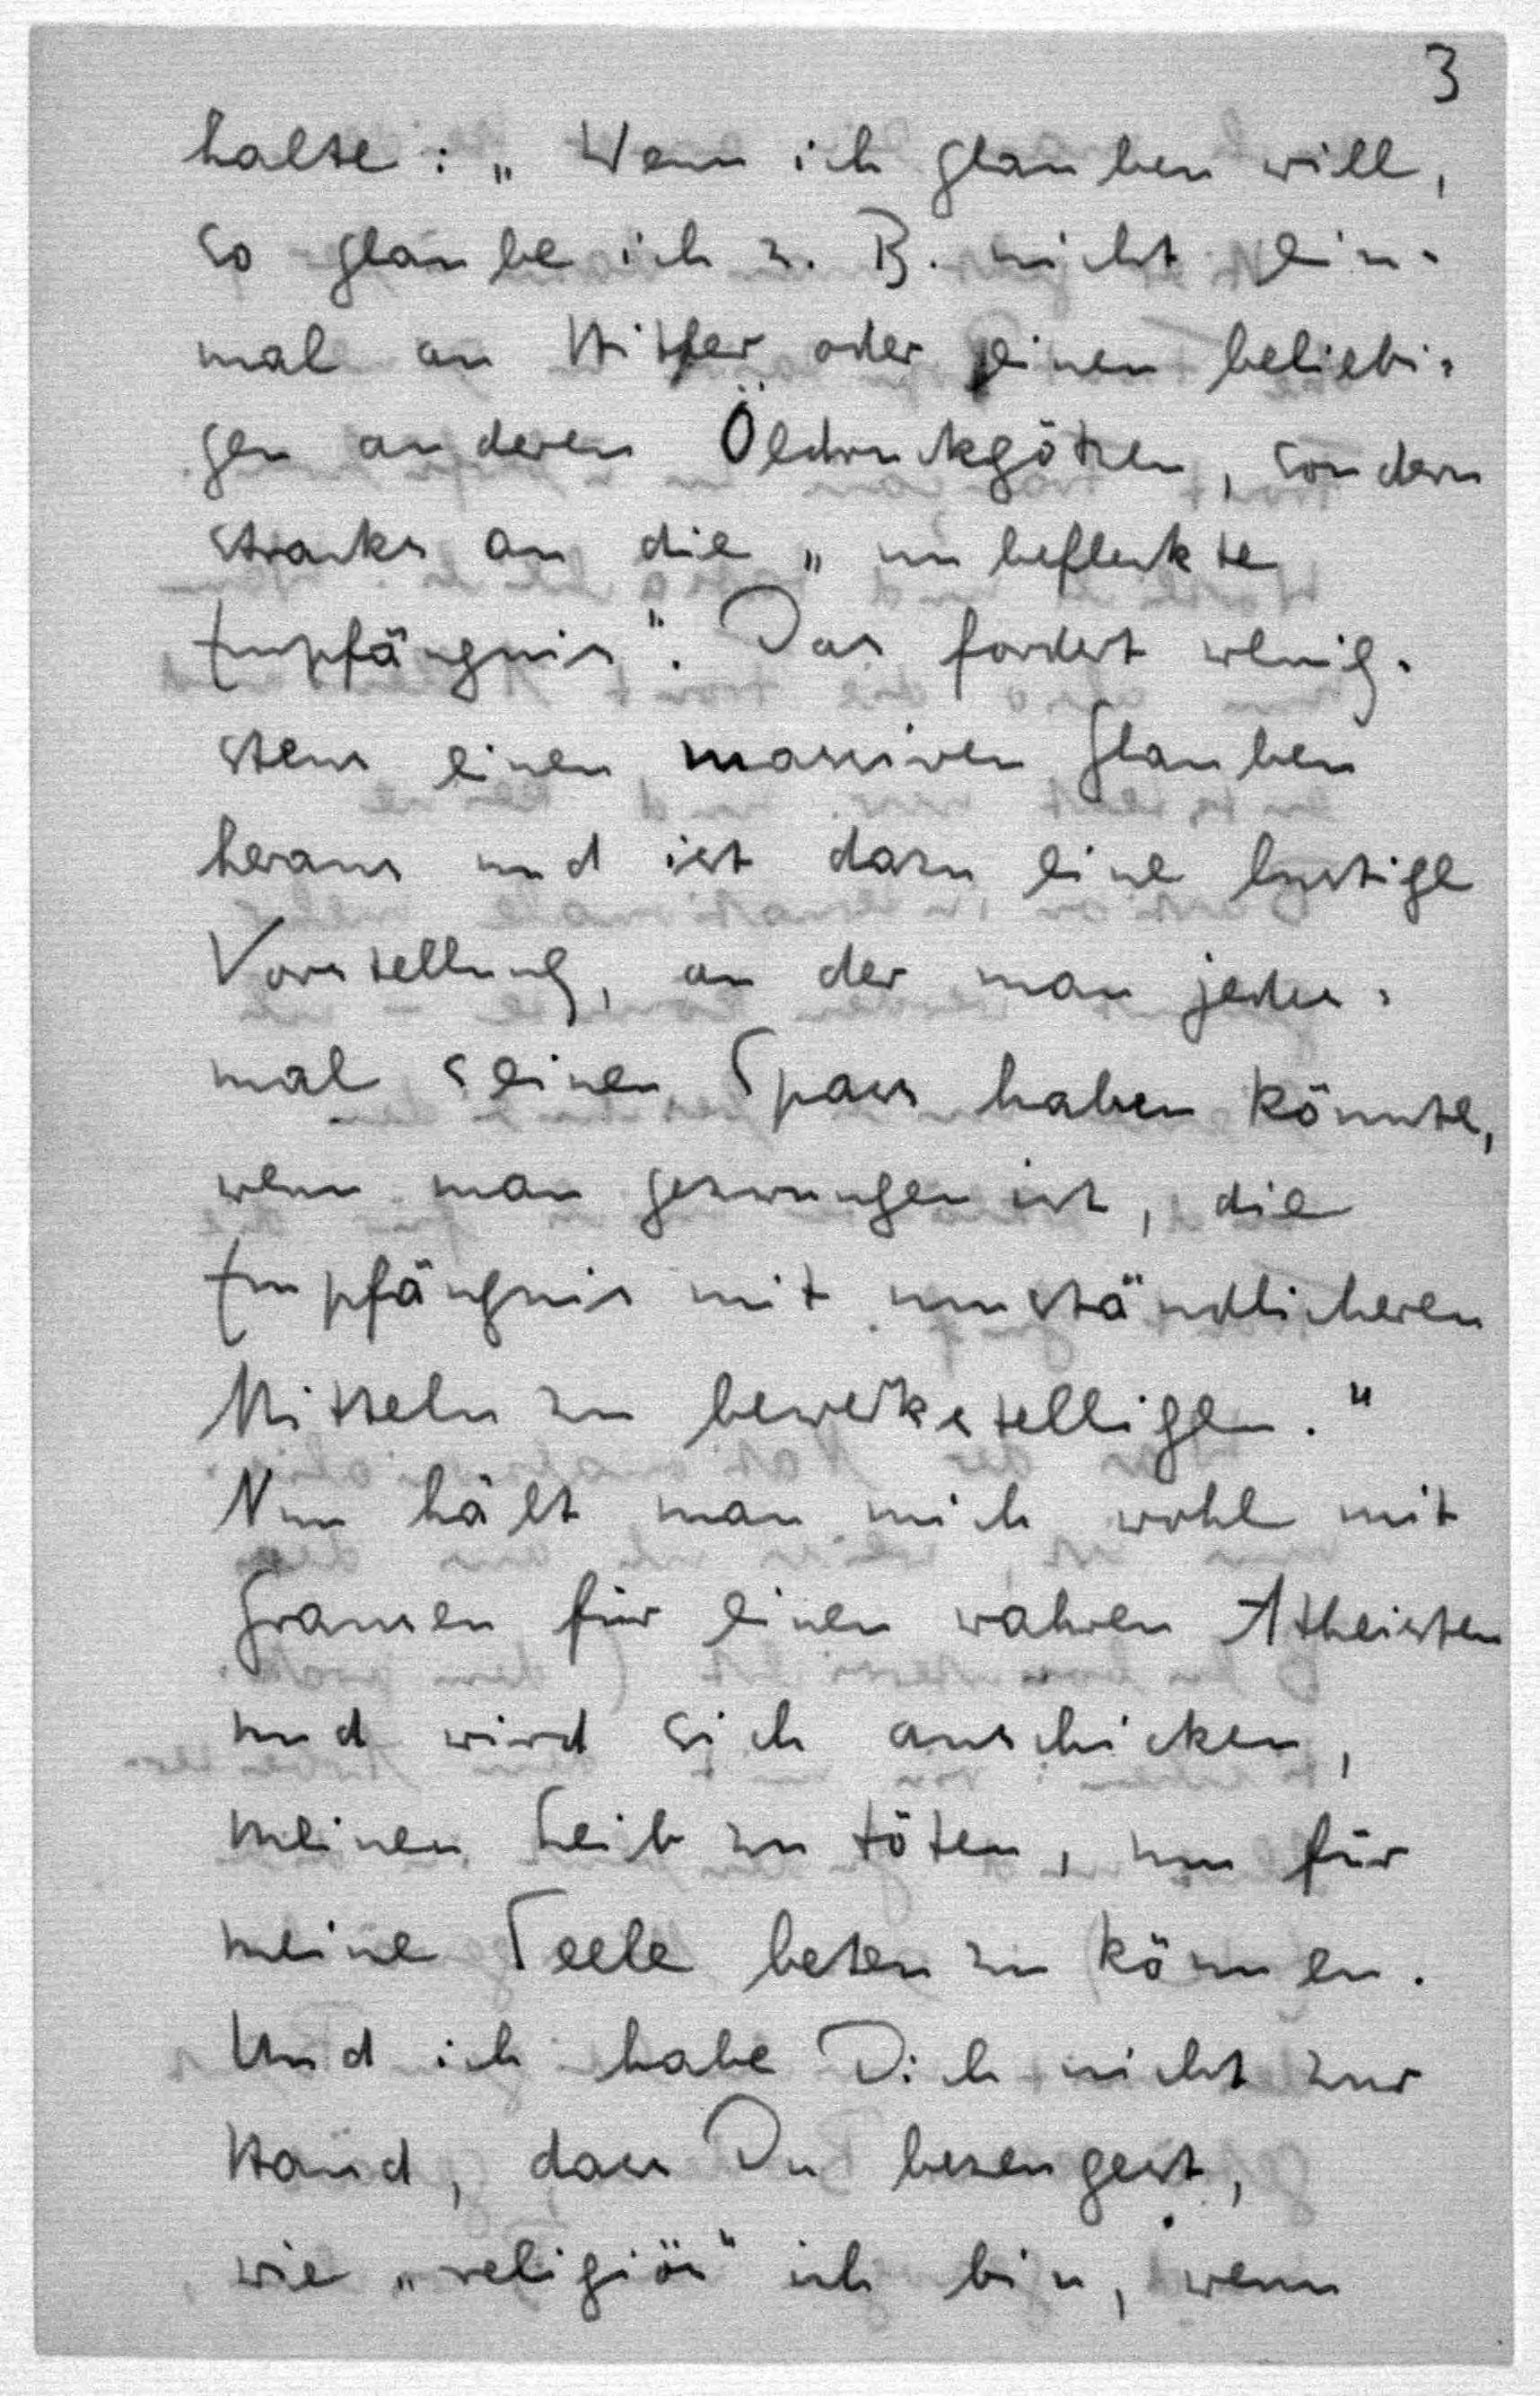 3
halte: „Wenn ich glauben will,
so glaube ich z. B. nicht ein-
mal an Hitler oder einen beliebi-
gen anderen Öldruckgötzen, sondern
stracks an die „unbefleckte
Empfängnis". Das fordert wenig-
stens einen massiven Glauben
heraus und ist dazu eine lustige
Vorstellung, an der man jedes-
mal seinen Spass haben könnte,
wenn man gezwungen ist, die
Empfängnis mit umständlicheren
Mitteln zu bewerkstelligen."
Nun hält man mich wohl mit
Grausen für einen wahren Atheisten
und wird sich anschicken,
meinen Leib zu töten, um für
meine Seele beten zu können.
Und ich habe Dich nicht zur
Hand, dass Du bezeugest,
wie „religiös" ich bin, wenn